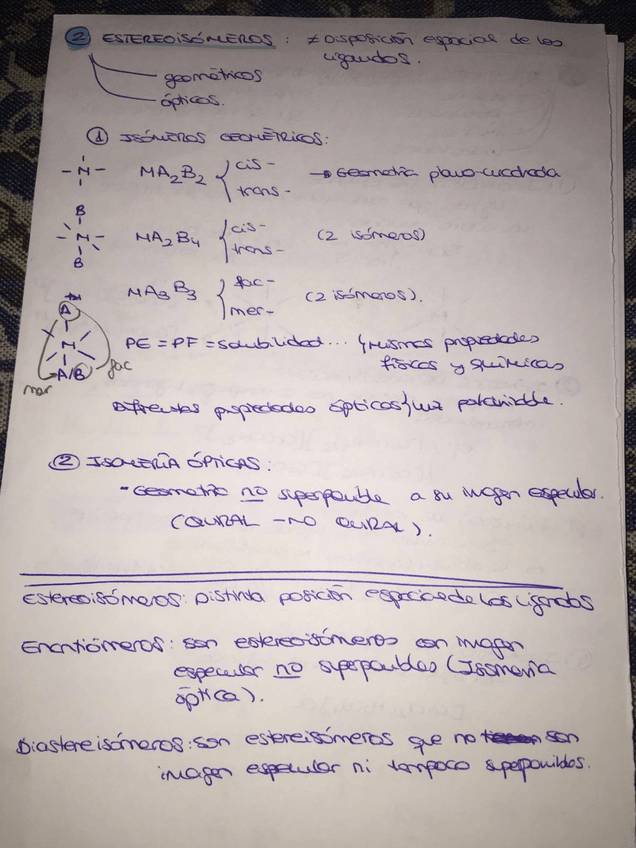 ② ESTEREOISÓMEROS : ≠ Disposición espacial de los
ligandos.
geométricos
ópticos.
① ISÓMEROS GEOMÉTRICOS:
- M - MA2B2 { cis- → Geometría plano-cuadrada
trans-
B
- M - MA2B4 { cis- (2 isómeros)
trans-
B
MA3B3 { fac- (2 isómeros).
mer-
A
M
A/B
mer
fac
PE = PF = solubilidad... / mismas propiedades
físicas y químicas
Diferentes propiedades ópticas/luz polarizable.
② ISOMERÍA ÓPTICAS:
- Geometría no superponible a su imagen especular.
(QUIRAL - NO QUIRAL).
Estereoisómeros: Distinta posición espacial de los ligandos
Enantiómeros: son estereoisómeros con imagen
especular no superponibles (Isomería
óptica).
Diastereisómeros: son estereisómeros que no son
imagen especular ni tampoco superponibles.